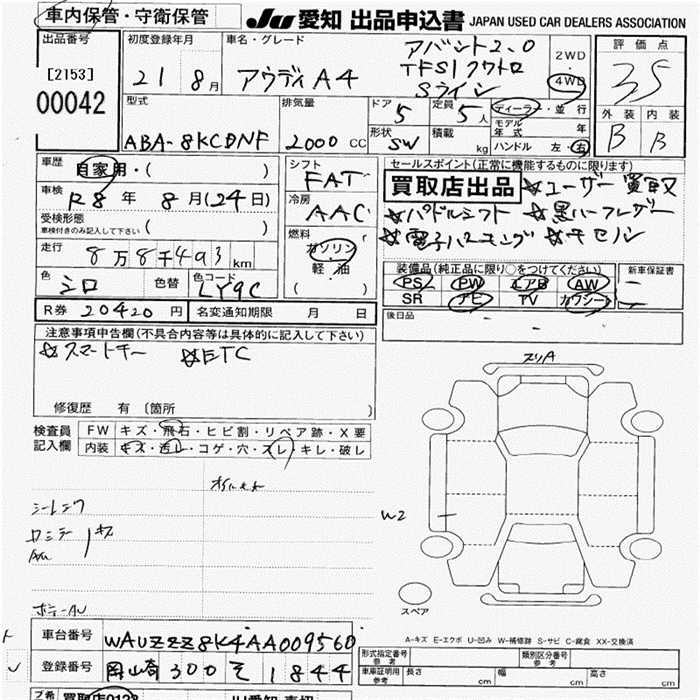 車内保管・守衛保管 JU 愛知 出品申込書 JAPAN USED CAR DEALERS ASSOCIATION
出品番号 初度登録年月 車名・グレード 評価点
[2153] 21 8月 アウディ A4 アバント2.0 2WD
00042 TFSI クワトロ 4WD 35
Sライン 外装 内装
型式 排気量 ドア 5 定員 5人 ディーラー・並行 B B
ABA-8KCDNF 2000 CC 形状 SW 積載 kg モデル年式 年
ハンドル 左・右
車歴 自家用・( ) シフト FAT セールスポイント(正常に機能するものに限ります)
車検 R8年 8月(24日) 冷房 AAC 買取店出品 ☆ユーザー買取
受検形態 車検付きのみ記入して下さい ・( ) 燃料 ガソリン 軽油 ( ) ☆パドルシフト ☆黒ハーフレザー
走行 8万8千493km ☆電子パーキング ☆キセノン
色 シロ 色替 色コード LY9C 装備品(純正品に限り○をつけてください) 新車保証書
PS PW エアB AW
SR ナビ TV カワシート
R券 20420円 名変通知期限 月 日 後日品
注意事項申告欄(不具合内容等は具体的に記入して下さい)
☆スマートキー ☆ETC
修復歴 有 〔箇所 〕
検査員記入欄 FW キズ・飛石・ヒビ割・リペア跡・X要
内装 キズ・汚レ・コゲ・穴・スレ・キレ・破レ
スリA
W2
スペア
A-キズ E-エクボ U-凹み W-補修跡 S-サビ C-腐食 XX-交換済
車台番号 WAUZZZ8K4AA009560
登録番号 岡山 300 1844
形式指定番号 参考 類別区分番号 参考
車庫証明用 参考 長さ cm 幅 cm 高さ cm